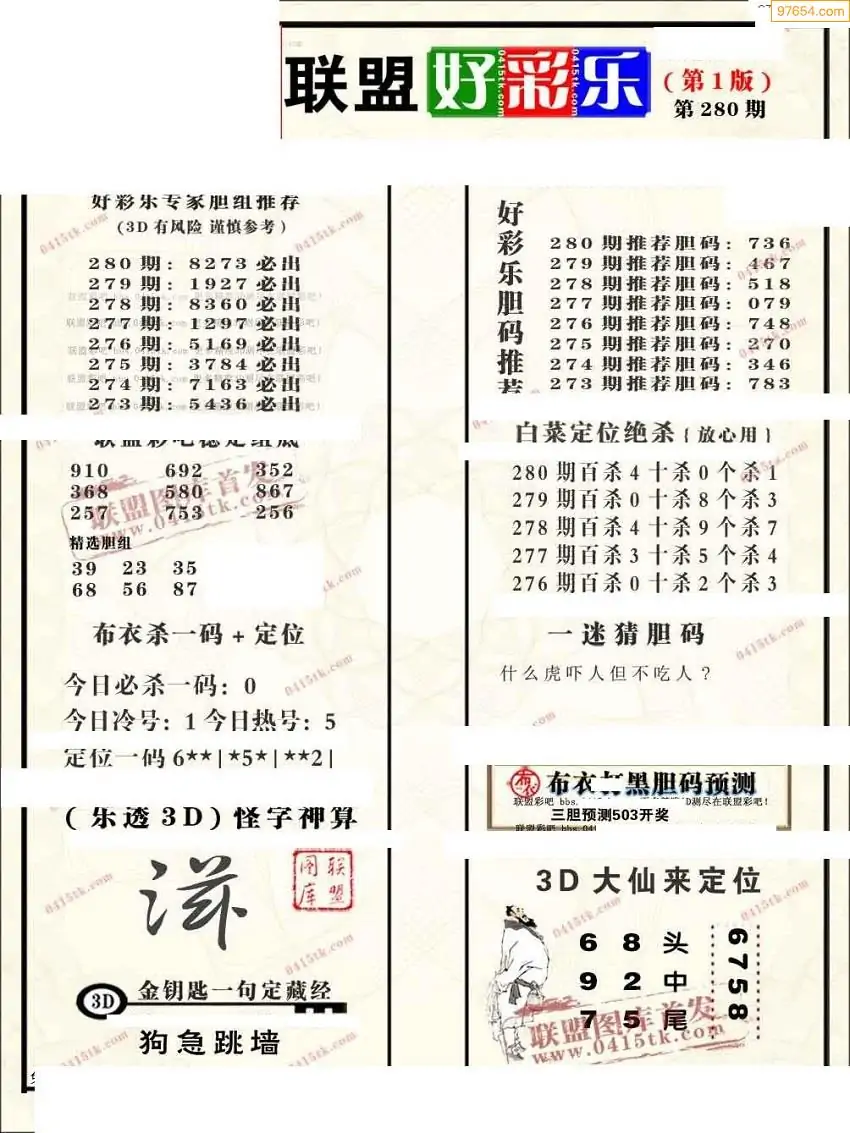 97654.com
联盟好彩乐
(第1版)
第280期
好彩乐专家胆组推荐
(3D有风险 谨慎参考)
280期: 8273必出
279期: 1927必出
278期: 8360必出
277期: 1297必出
276期: 5169必出
275期: 3784必出
274期: 7163必出
273期: 5436必出
联盟彩吧稳定组底
910 692 352
368 580 867
257 753 256
精选胆组
39 23 35
68 56 87
布衣杀一码+定位
今日必杀一码: 0
今日冷号: 1 今日热号: 5
定位一码 6**|*5*|**2|
(乐透3D)怪字神算
联盟图库
3D
金钥匙一句定藏经
狗急跳墙
好彩乐胆码推荐
280期推荐胆码: 736
279期推荐胆码: 467
278期推荐胆码: 518
277期推荐胆码: 079
276期推荐胆码: 748
275期推荐胆码: 270
274期推荐胆码: 346
273期推荐胆码: 783
白菜定位绝杀{放心用}
280期百杀4十杀0个杀1
279期百杀0十杀8个杀3
278期百杀4十杀9个杀7
277期百杀3十杀5个杀4
276期百杀0十杀2个杀3
一迷猜胆码
什么虎吓人但不吃人?
布衣
布衣打黑胆码预测
三胆预测503开奖
3D大仙来定位
6 8 头
9 2 中
7 5 尾
6758
联盟图库首发
www.0415tk.com
0415tk.com